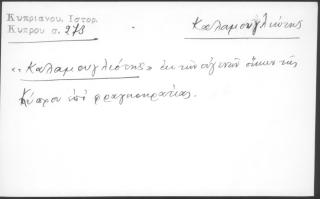 Κυπριανου. Ιστορ.
Κυπρου σ. 273
Καλαμουγλιώτης
"Καλαμουγλιότης" ἐκ τῶν εὐγενῶν οἴκων τῆς
Κύπρου ἐπὶ φραγκοκρατίας.